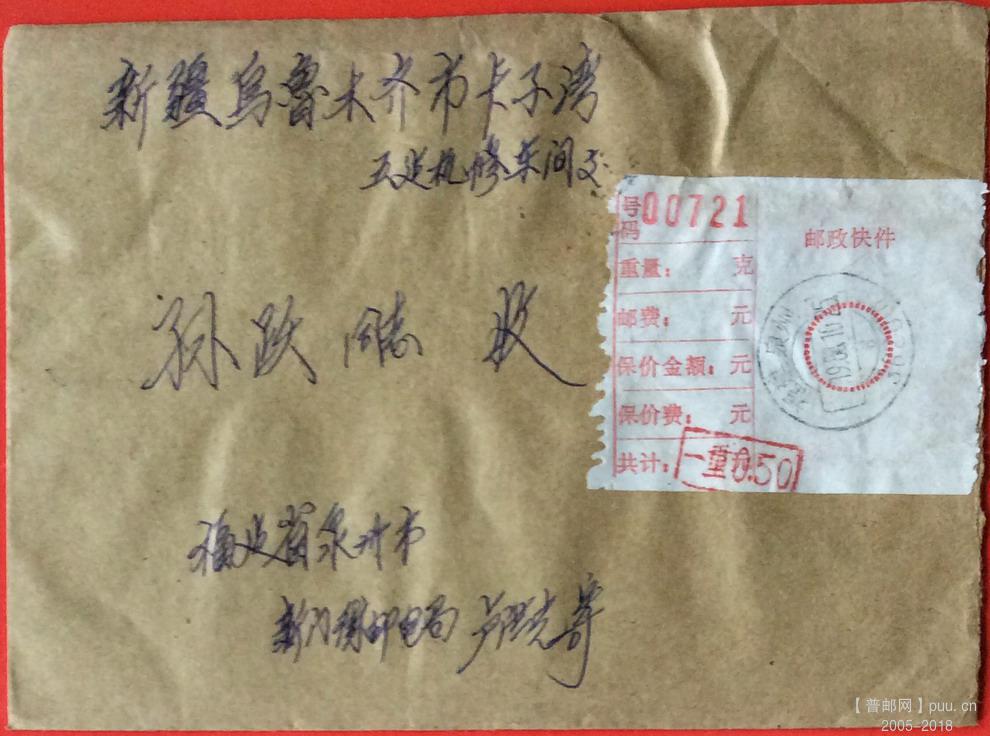 新疆乌鲁木齐市卡子湾
五建机修车间交
孙跃 同志 收
号码 00721
重量： 克
邮费： 元
保价金额： 元
保价费： 元
共计： 元
一重0.50
邮政快件
福建省泉州市
新门楼邮电局 寄
【普邮网】puu.cn
2005-2018